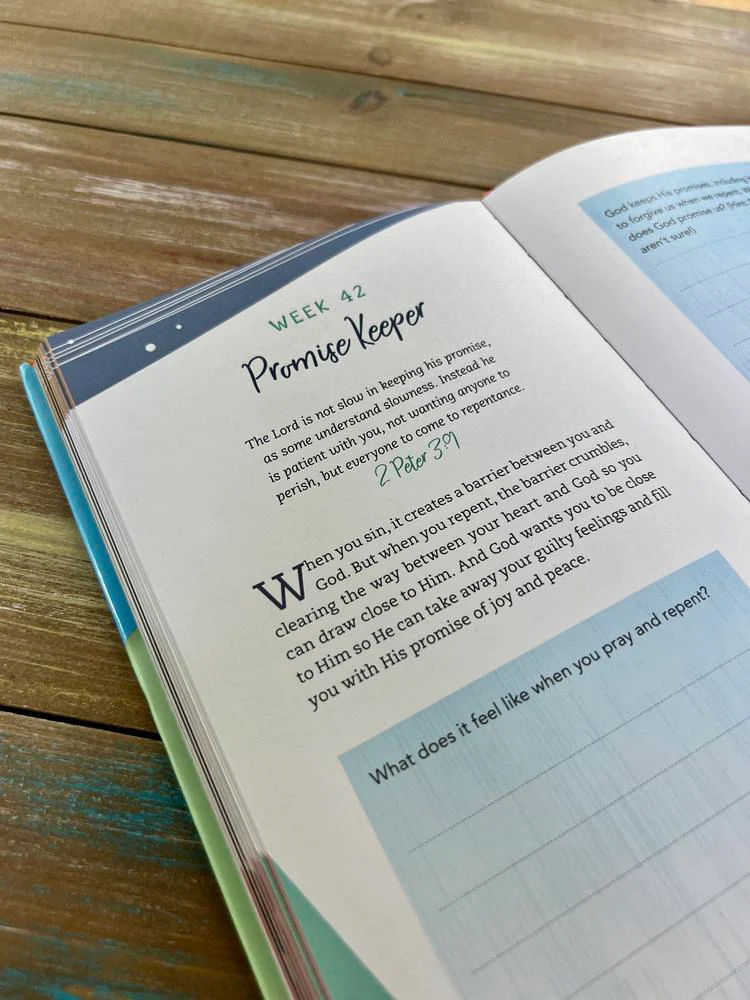 WEEK 42
Promise Keeper
The Lord is not slow in keeping his promise,
as some understand slowness. Instead he
is patient with you, not wanting anyone to
perish, but everyone to come to repentance.
2 Peter 3:9
When you sin, it creates a barrier between you and
God. But when you repent, the barrier crumbles,
clearing the way between your heart and God so you
can draw close to Him. And God wants you to be close
to Him so He can take away your guilty feelings and fill
you with His promise of joy and peace.
What does it feel like when you pray and repent?
God keeps His promises, including
to forgive us when we repent.
does God promise us?
aren't sure!)